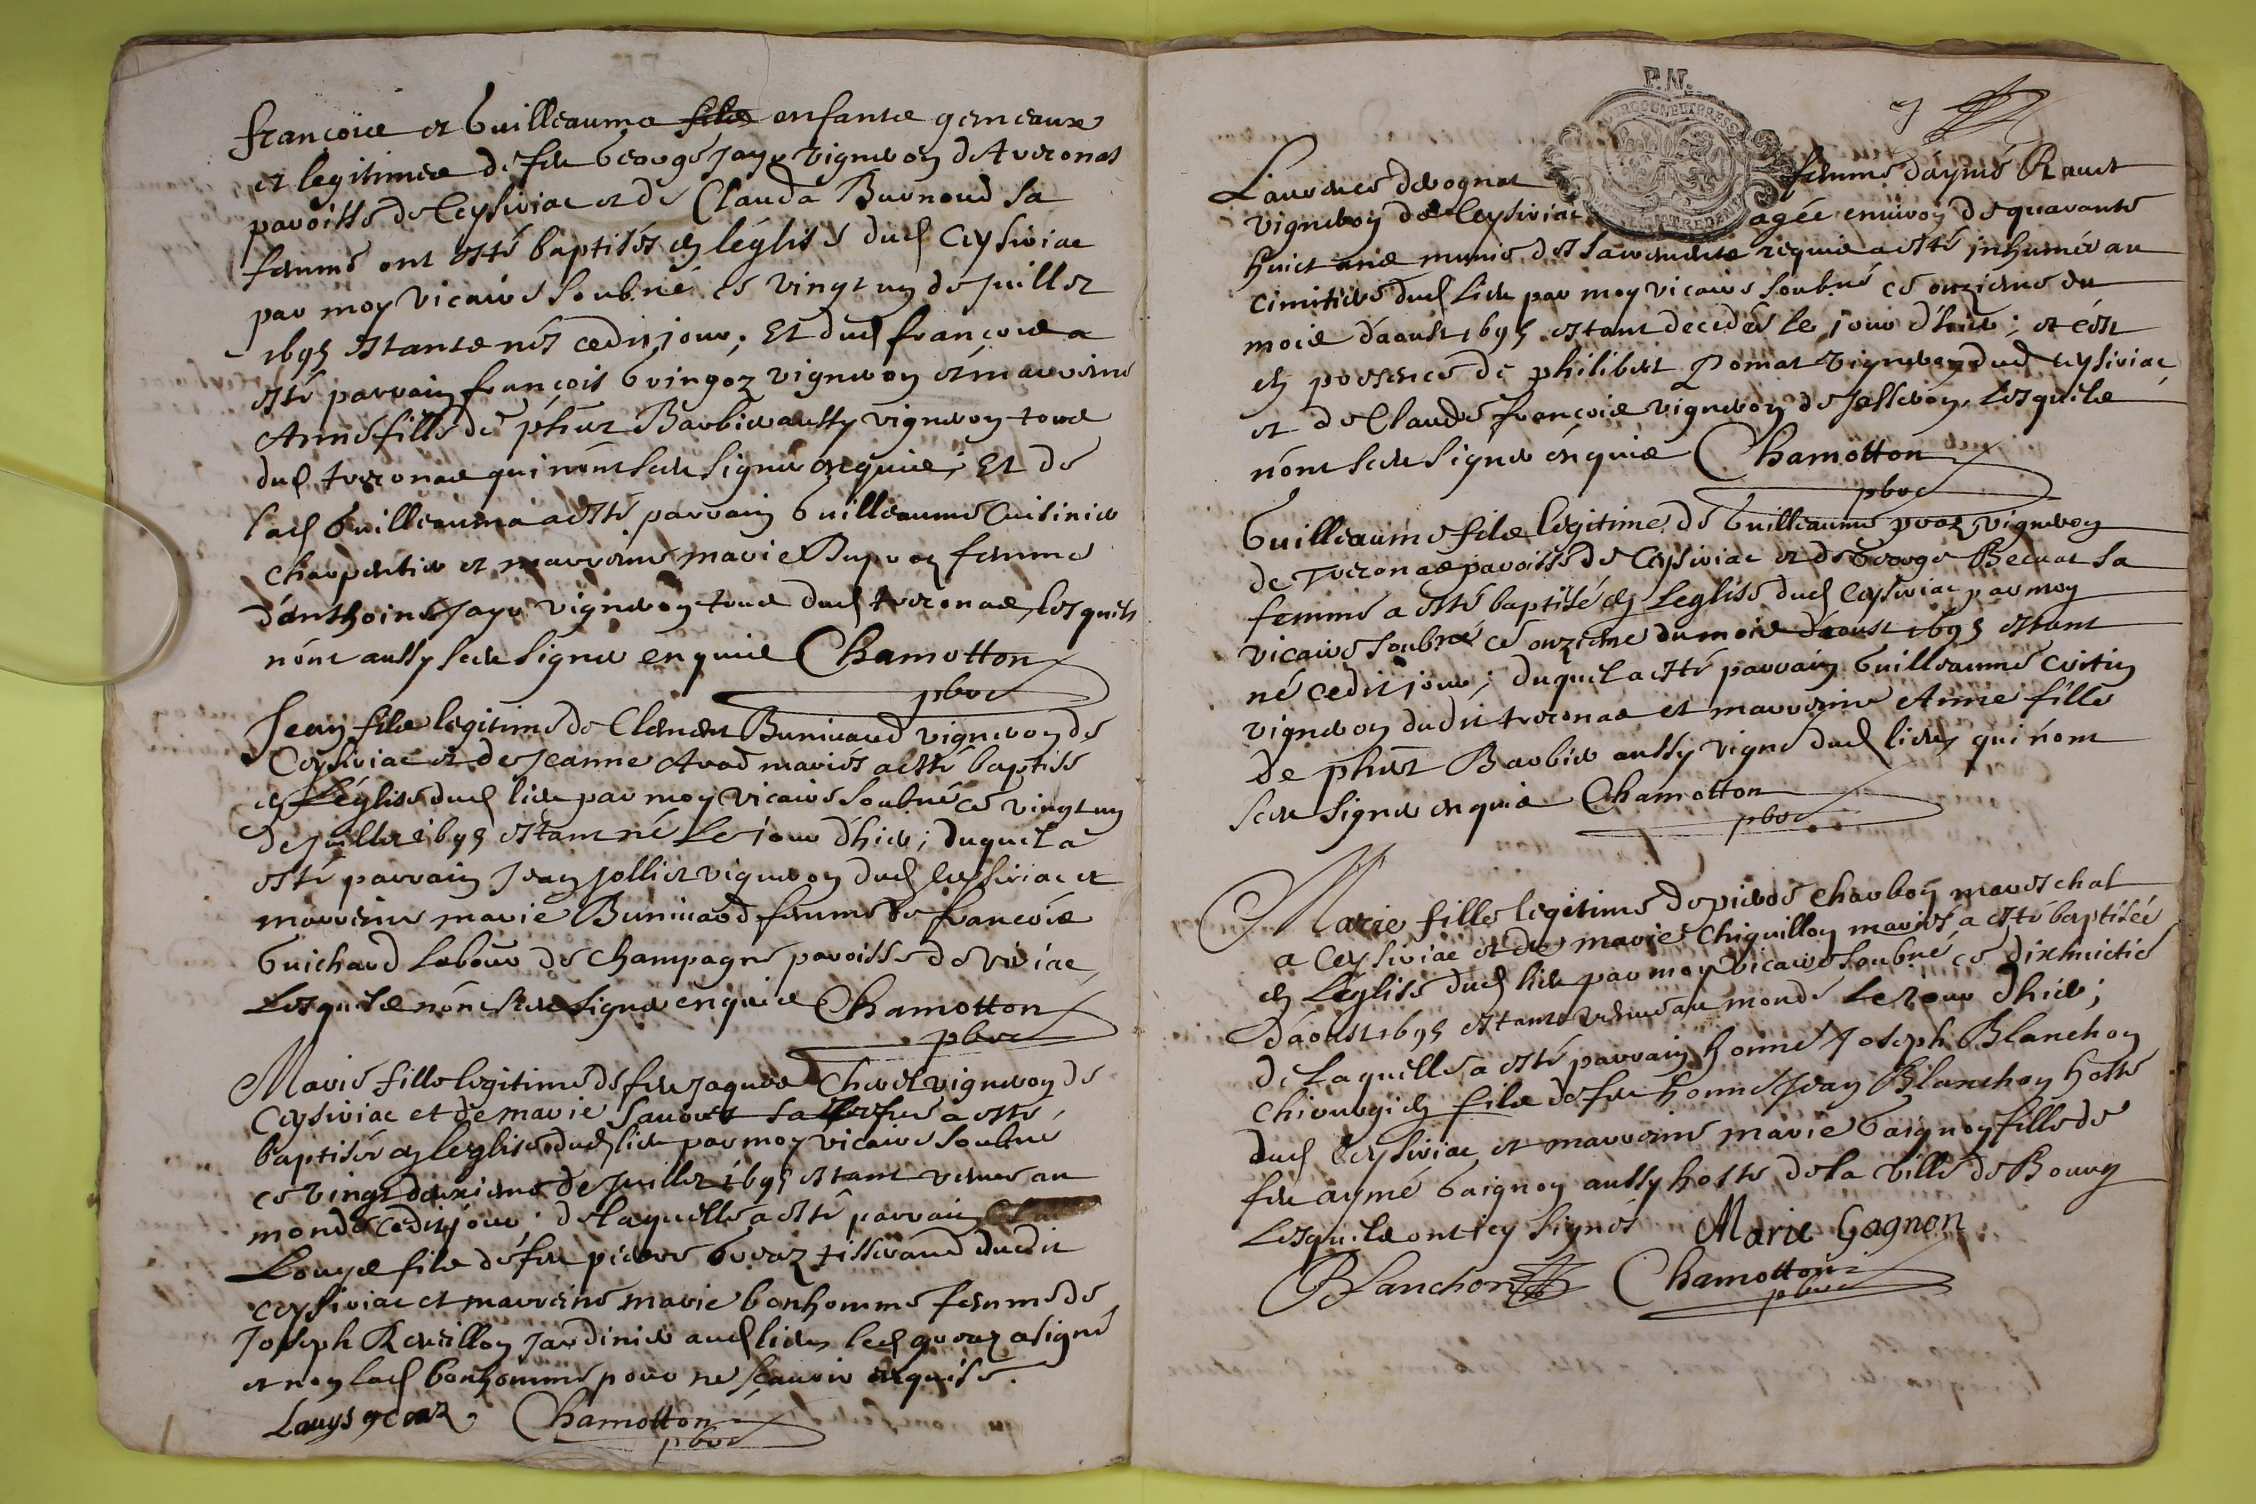 françois et Guilleauma fils enfants gemeaux
et legitimes de feu George Jayr vigneron de Treconas
paroisse de Ceysiriac et de Clauda Burnoud sa
femme ont esté baptisés en léglise dud Ceysiriac
par moy vicaire soubné ce vingt un de juillet
1695 estants nés cedit jour; Et dud françois a
esté parrain françois vigneron et marreine
Anne fille de phert Barbier aussy vigneron tous
dud treconas qui nónt sceu signer enquis; Et de
lad Guilleauma a esté parrain Guilleaume Cuisinier
charpentier et marreine marie Dupraz femme
dánthoine Jayr vigneron tous dud treconas, lesquels
nónt aussy sceu signer enquis Chamotton
pbre
Jean fils legitime de Clement Buniuard vigneron de
Ceysiriac et de Jeanne Arod mariés a esté baptisé
en léglise dud lieu par moy vicaire soubné ce vingt un
de juillet 1695 estant né le jour dhier; duquel a
esté parrain Jean Jolliet vigneron dud Ceysiriac et
marreine marie Buniuard femme de françois
Guichard labour de champagne paroisse de
Lesquels nónt sceu signer enquis Chamotton
pbre
Marie fille legitime de feu Jaques vigneron de
Ceysiriac et de marie sa a esté
baptisée en leglise dud lieu par moy vicaire soubné
ce vingt deuxieme de juillet 1695 estant venue au
monde cedit jour; de laquelle a esté parrain
Louys fils de feu pierre Goraz tisserand dudit
ceysiriac et marreine marie bonhomme femme de
Joseph Reuillon Jardinier aud lieu, led goraz a signé
et non lad bonhomme pour ne scauoir enquise.
Louys goraz Chamotton
pbre
P.N.
Laurence femme dáymé Rauet
vigneron de Ceysiriac agée enuiron de quarante
huict ans munie des sacrements requis a esté inhumée au
cimitiere dud lieu par moy vicaire soubné ce onzieme du
mois daoust 1695 estant decedée le jour dhier; et cést
en presence de philibert Pomat vigneron dud ceysiriac
et de Claude françois vigneron de Jasseron, lesquels
nónt sceu signer enquis Chamotton
pbre
Guilleaume fils legitime de Guilleaume praz vigneron
de Treconas paroisse de Ceysiriac et de George Becuat sa
femme a esté baptisé en leglise dud ceysiriac par moy
vicaire soubné ce onzieme du mois daoust 1695 estant
né cedit jour; duquel a esté parrain Guilleaume
vigneron dudit treconas et marreine Anne fille
de phert Barbier aussy vigne dud lieu, qui nónt
sceu signer enquis Chamotton
pbre
Marie fille legitime de pierre charbon mareschal
a Ceysiriac et de marie chiquillon mariés a esté baptisée
en léglise dud lieu par moy vicaire soubné, ce dixhuictie
dáoust 1695 estant venue au monde le jour dhier;
de laquelle a esté parrain honne Joseph Blanchon
chirurgien fils de feu honne Jean Blanchon hoste
dud Ceysiriac, et marreine marie Gaignon fille de
feu aymé Gaignon aussy hoste de la ville de Bourg
Lesquels ont icy signés Marie Gagnon
Blanchon Chamotton
pbre